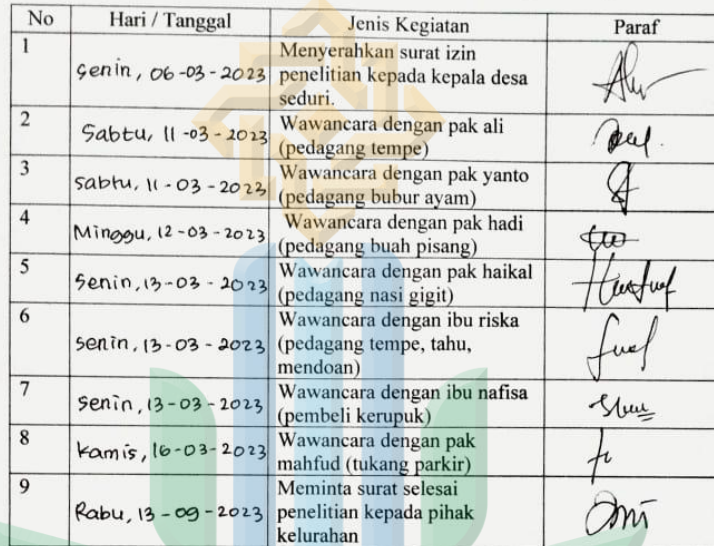 No Hari / Tanggal Jenis Kegiatan Paraf
1 Senin, 06-03-2023 Menyerahkan surat izin
penelitian kepada kepala desa
seduri.
2 Sabtu, 11-03-2023 Wawancara dengan pak ali
(pedagang tempe)
3 Sabtu, 11-03-2023 Wawancara dengan pak yanto
(pedagang bubur ayam)
4 Minggu, 12-03-2023 Wawancara dengan pak hadi
(pedagang buah pisang)
5 Senin, 13-03-2023 Wawancara dengan pak haikal
(pedagang nasi gigit)
6 Senin, 13-03-2023 Wawancara dengan ibu riska
(pedagang tempe, tahu,
mendoan)
7 Senin, 13-03-2023 Wawancara dengan ibu nafisa
(pembeli kerupuk)
8 Kamis, 16-03-2023 Wawancara dengan pak
mahfud (tukang parkir)
9 Rabu, 13-09-2023 Meminta surat selesai
penelitian kepada pihak
kelurahan